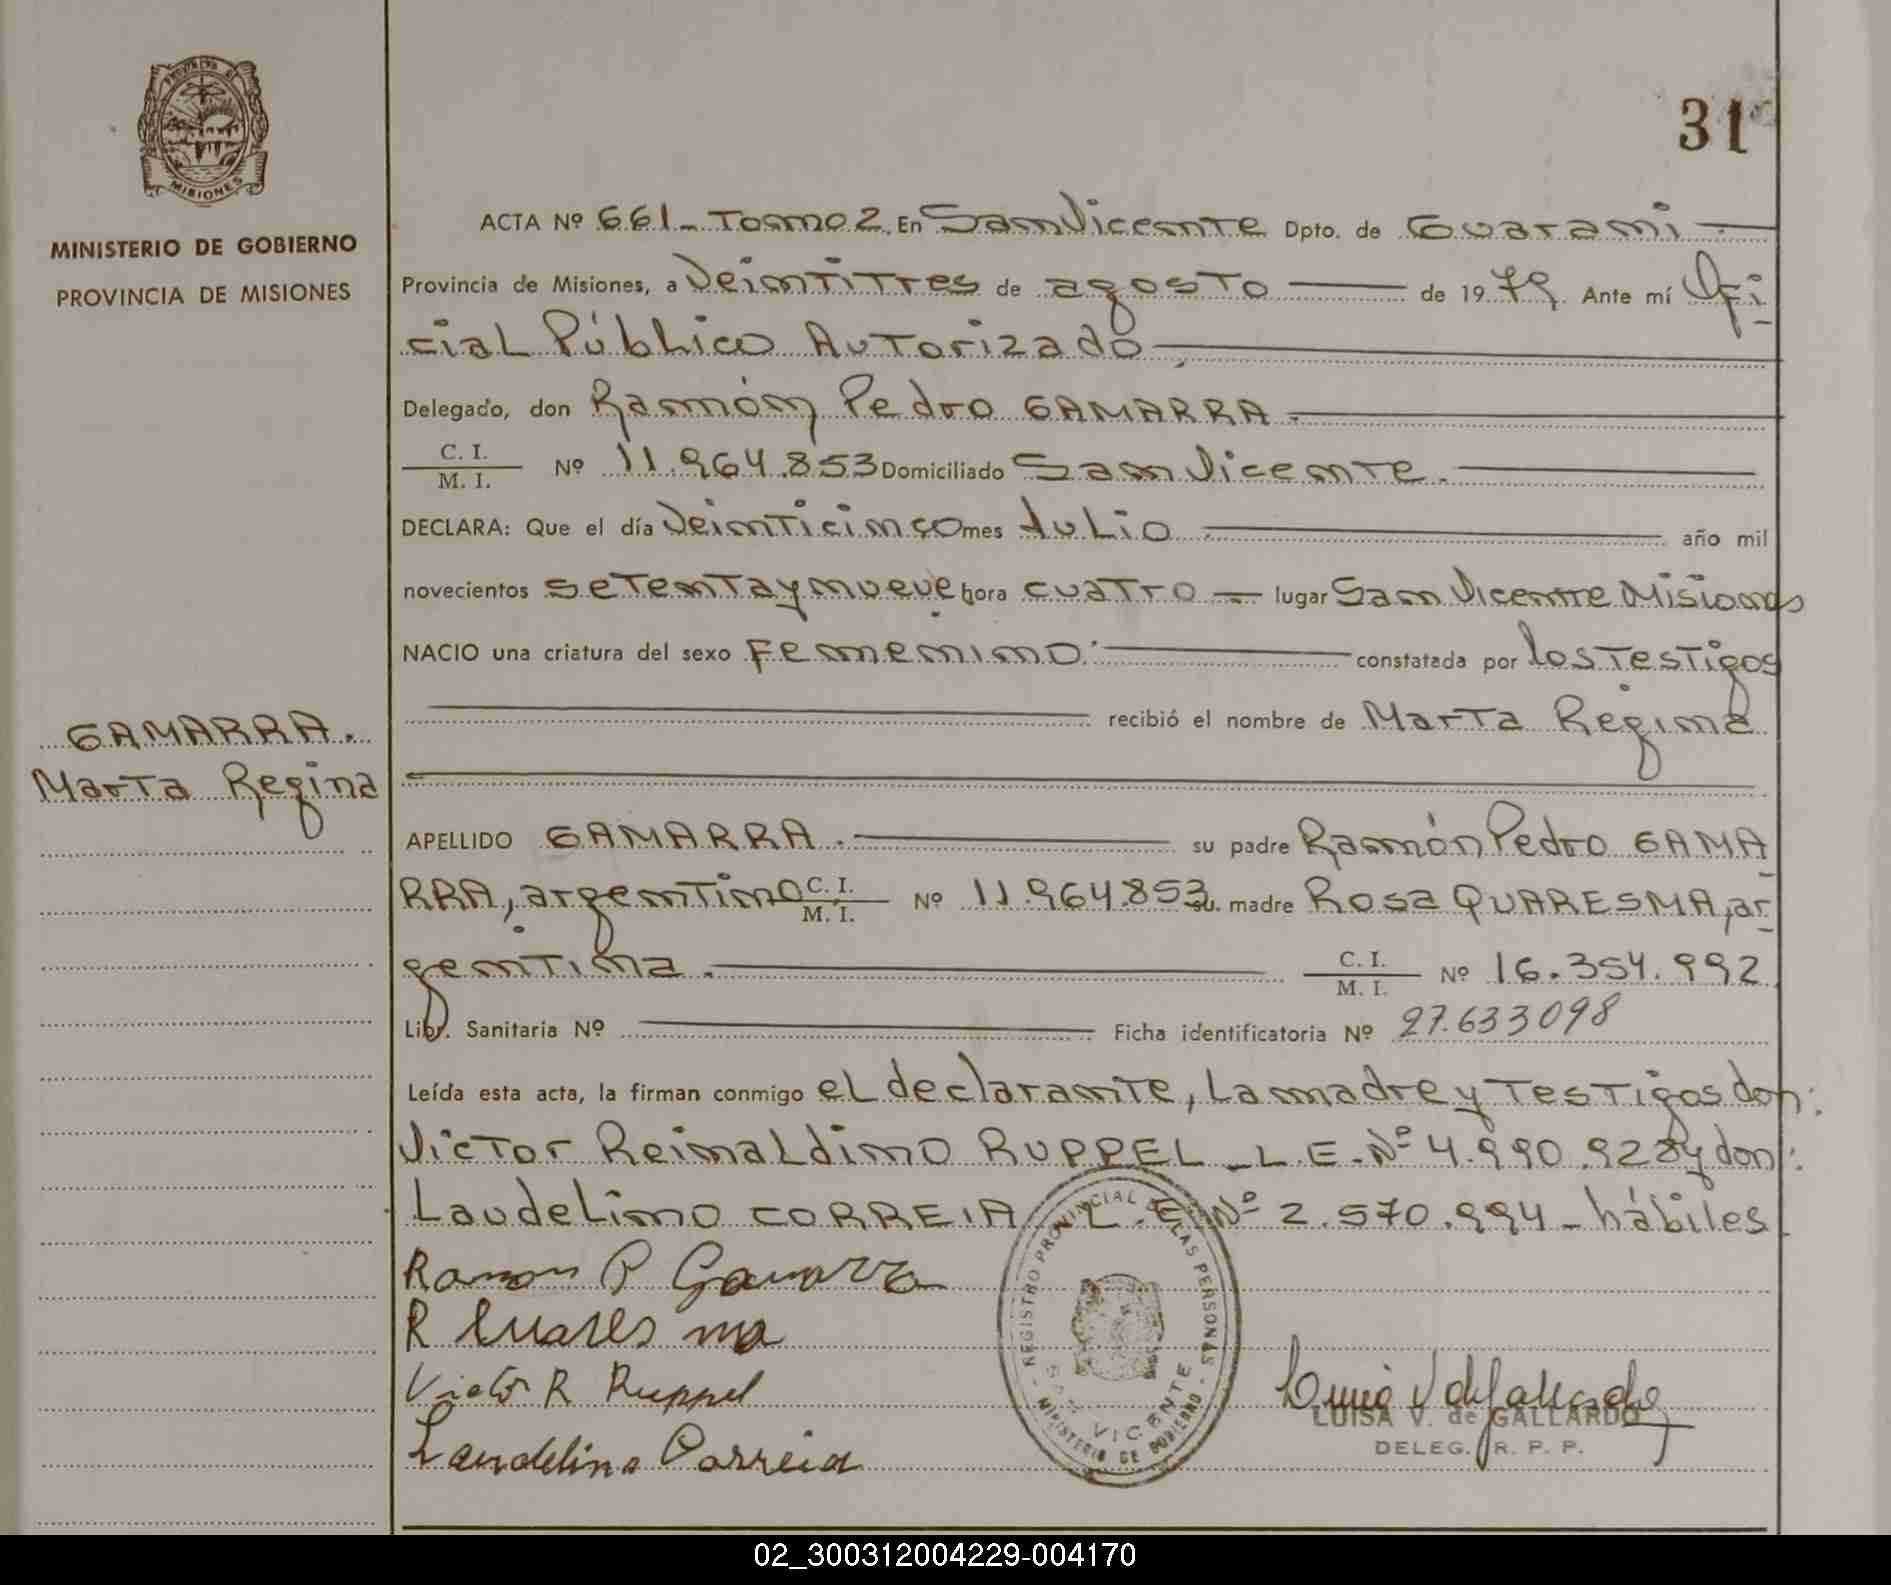 PROVINCIA DE
MISIONES
MINISTERIO DE GOBIERNO
PROVINCIA DE MISIONES
31
ACTA Nº 661 - Tomo 2. En San Vicente Dpto. de Guarani
Provincia de Misiones, a Veintitres de agosto de 1979. Ante mí Ofi
cial Público Autorizado
Delegado, don Ramón Pedro GAMARRA.
C. I.
M. I. Nº 11.964.853 Domiciliado San Vicente.
DECLARA: Que el día Veinticinco mes Julio año mil
novecientos setenta y nueve hora cuatro lugar San Vicente Misiones
NACIO una criatura del sexo Femenino. constatada por los Testigos
recibió el nombre de Marta Regina
GAMARRA.
Marta Regina
APELLIDO GAMARRA. su padre Ramón Pedro GAMA
RRA, argentino C. I. M. I. Nº 11.964.853 su madre Rosa QUARESMA, ar
gentina. C. I. M. I. Nº 16.354.992
Libr. Sanitaria Nº Ficha identificatoria Nº 27.633098
Leída esta acta, la firman conmigo el declarante, la madre y Testigos don:
Victor Reinaldino RUPPEL - L.E. Nº 4.990.928 y don:
Laudelino CORREIA L.E. Nº 2.570.994 - hábiles
Ramon P Gamarra
R Cuaresma
Victor R Ruppel
Laudelino Correia
REGISTRO PROVINCIAL DE LAS PERSONAS
SAN VICENTE
MINISTERIO DE GOBIERNO
LUISA V. de GALLARDO
DELEG. R. P. P.
02_300312004229-004170